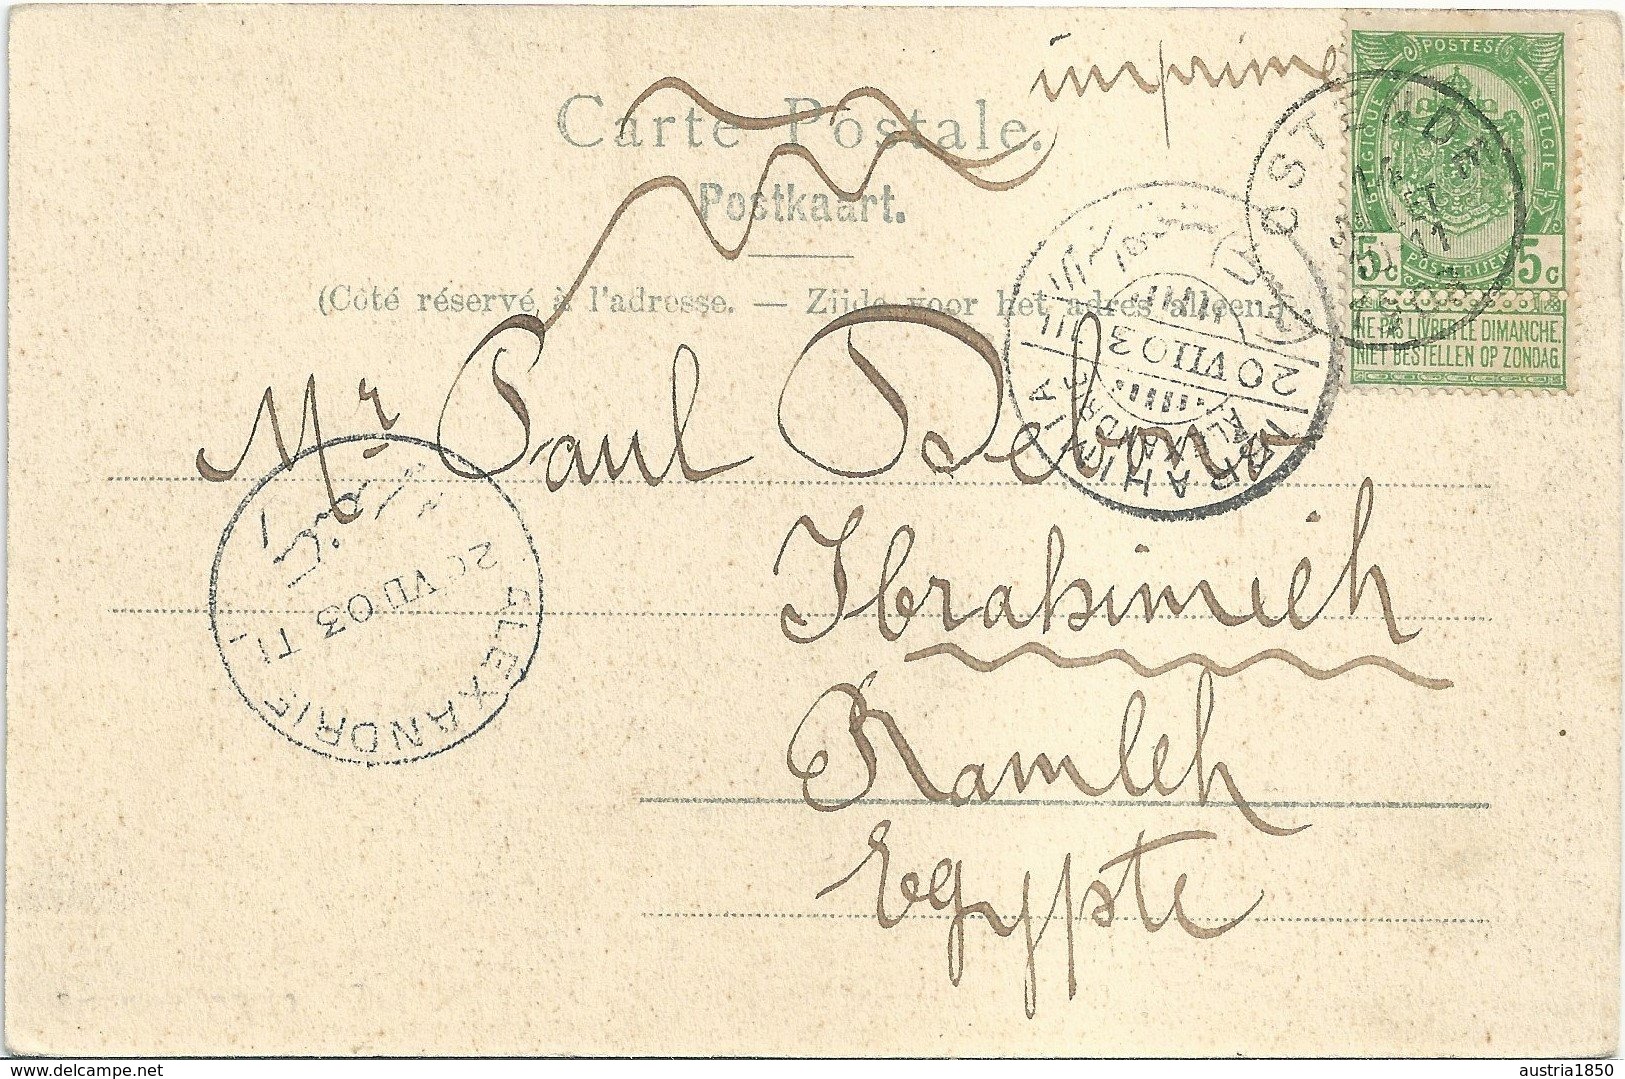 imprimé
Carte Postale.
Postkaart.
(Côté réservé à l'adresse. — Zijde voor het adres alleen.)
POSTES
BELGIQUE
BELGIE
POSTERIJEN
5c 5c
NE PAS LIVRER LE DIMANCHE.
NIET BESTELLEN OP ZONDAG.
OSTENDE
IBRAHIMIA
ALEXANDRIE
20 VII 03
Mr Paul
Ibrahimieh
Ramleh
Egypte
ALEXANDRIE
20 VII 03 T1
delcampe.net
austria1850